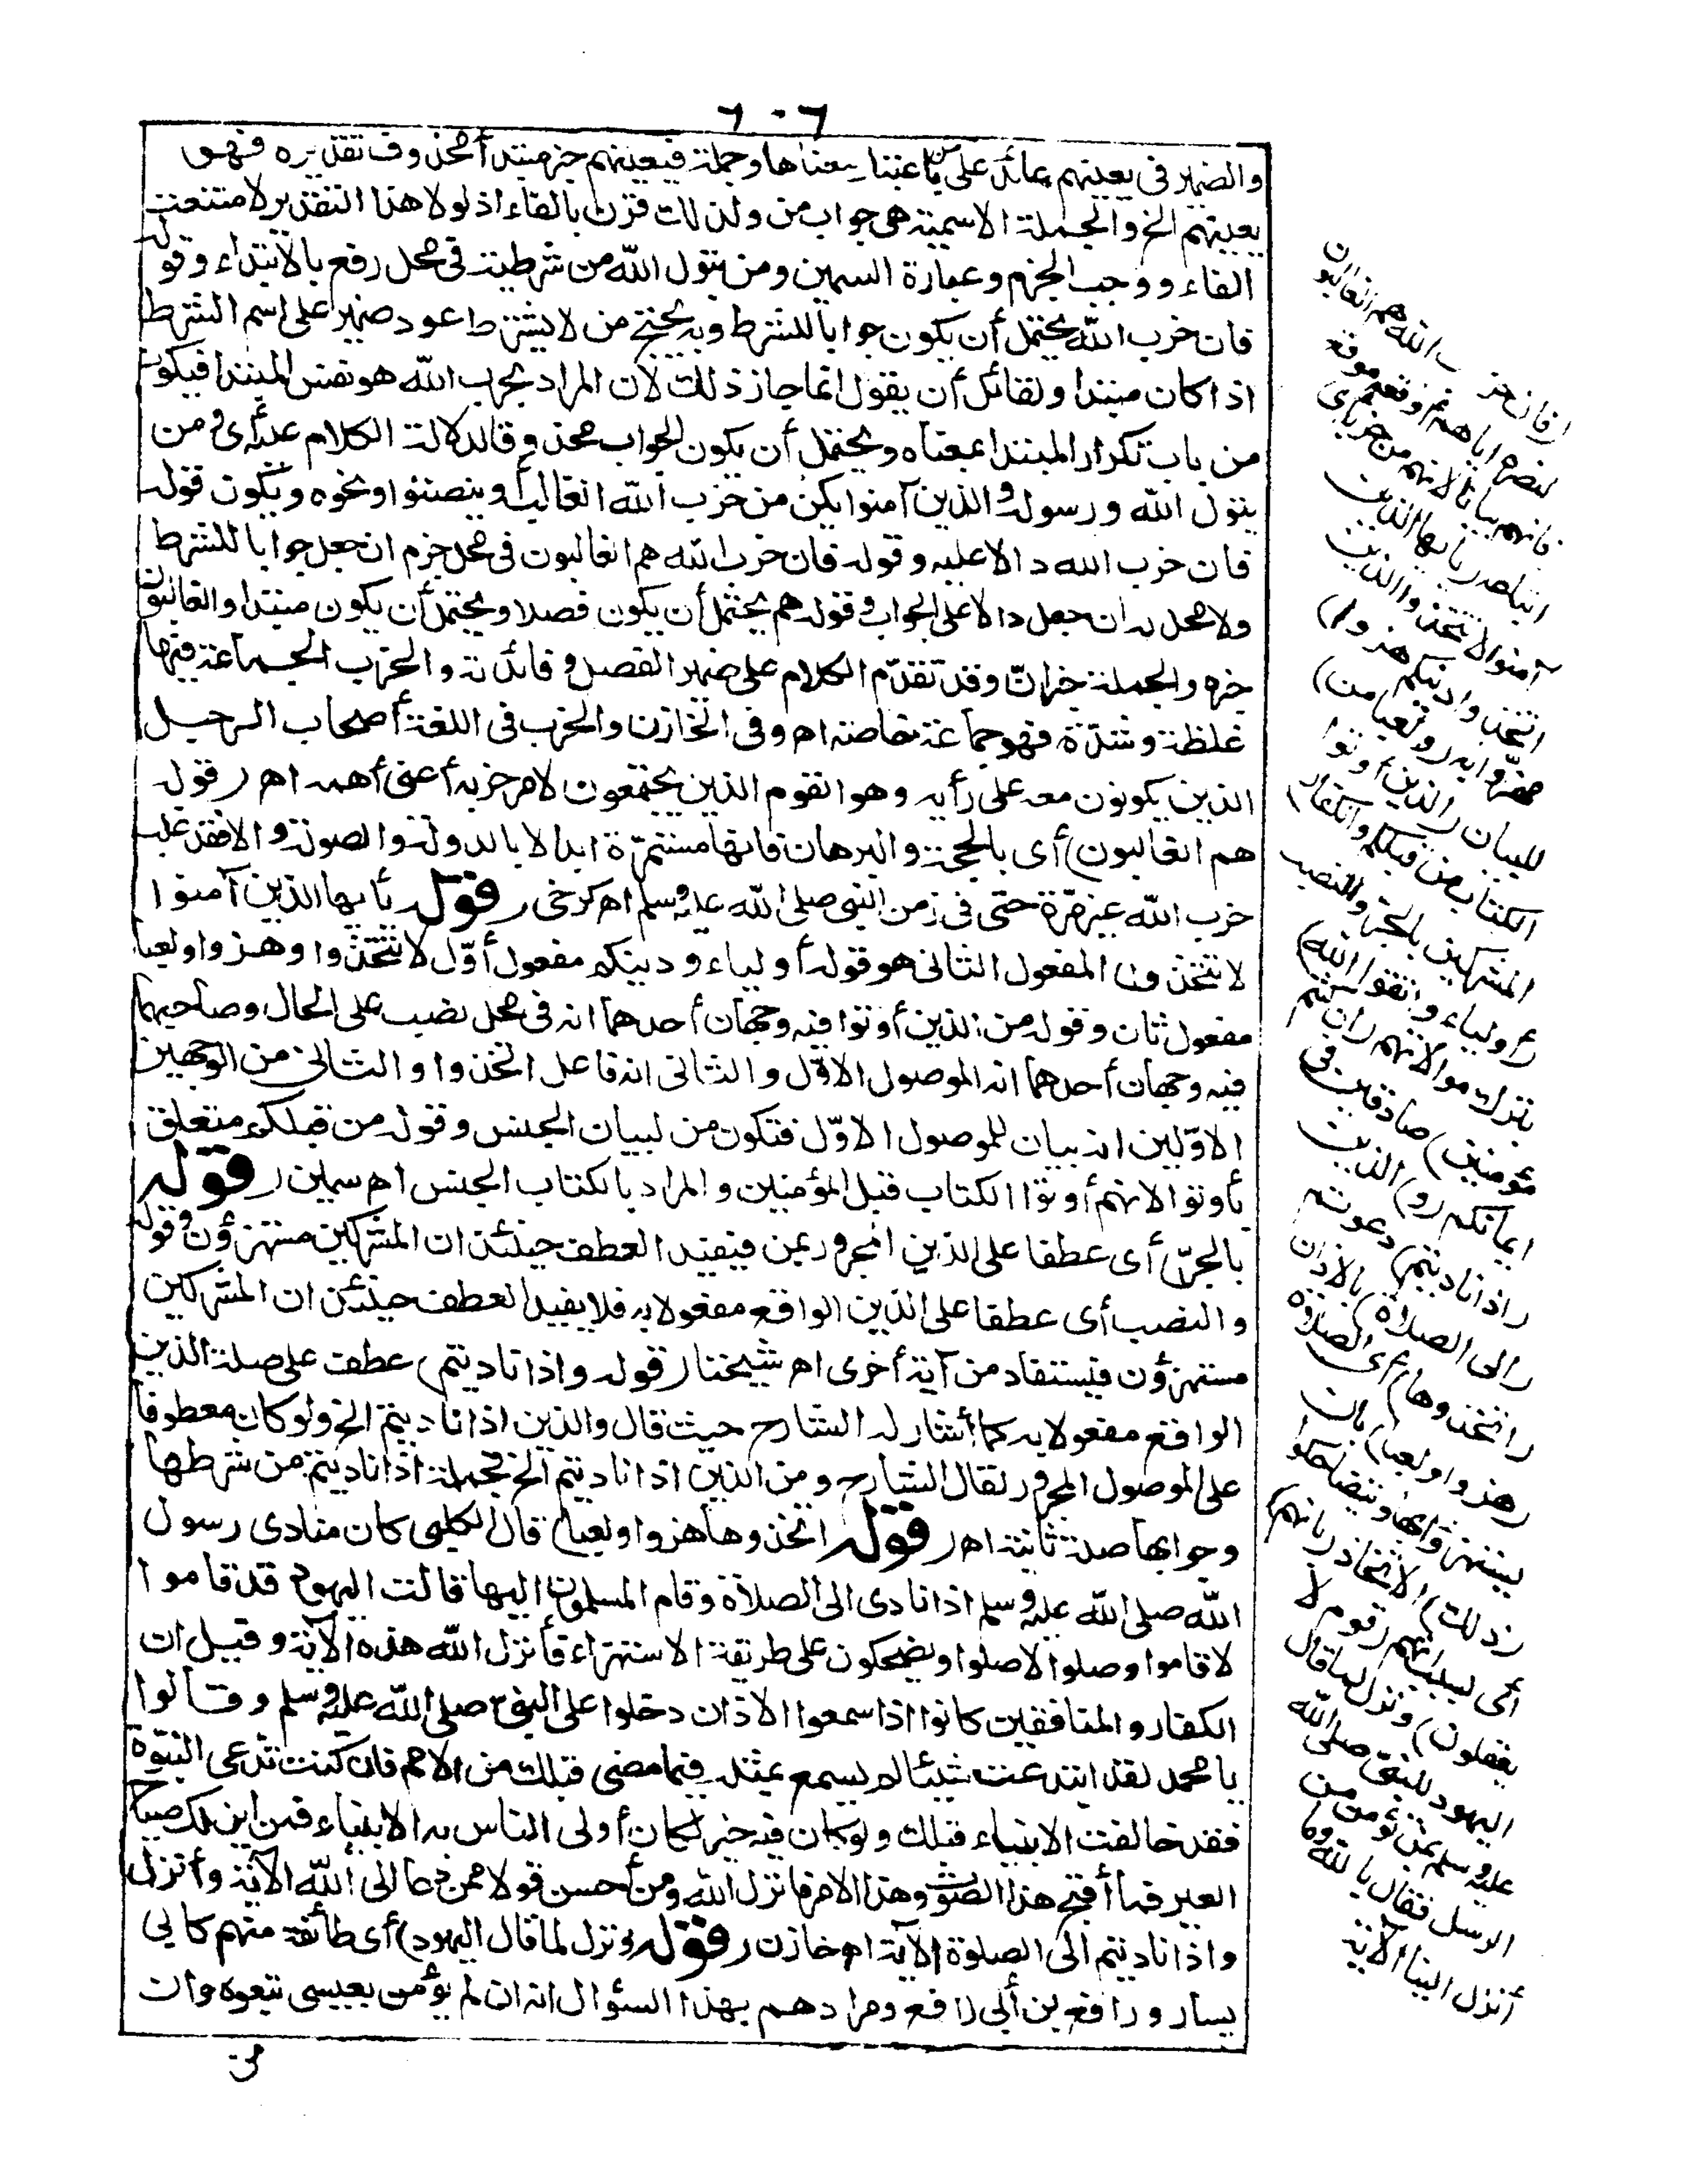 ٦٠٦
والضمير فى يعينهم عائد على من باعتبار معناها وجملة فيعينهم خبر مبتدأ محذوف تقديره فهو
يعينهم الخ والجملة الاسمية هى جواب من ولذلك قرن بالفاء اذ لولا هذا التقدير لامتنعت
الفاء ووجب الجزم وعبارة السمين ومن يتول الله من شرطية فى محل رفع بالابتداء وقوله
فان حزب الله يحتمل أن يكون جوابا للشرط وبه يحتج من لا يشترط عود ضمير على اسم الشرط
اذا كان مبتدا ولقائل أن يقول انما جاز ذلك لان المراد بحزب الله هو نفس المبتدا فيكون
من باب تكرار المبتدا بمعناه ويحتمل أن يكون الجواب محذوفا لدلالة الكلام عليه أى ومن
يتول الله ورسوله والذين آمنوا يكن من حزب الله الغالب أو ينصتنوا ونحوه ويكون قوله
فان حزب الله دالا عليه وقوله فان حزب الله هم الغالبون فى محل جزم ان جعل جوابا للشرط
ولا محل له ان جعل دالا على الجواب وقوله هم يحتمل أن يكون فصلا ويحتمل أن يكون مبتدا والغالبون
خبره والجملة خبر ان وقد تقدم الكلام على ضمير الفصل وفائدته والحزب الجماعة فيها
غلظة وشدة فهو جماعة خاصة اه وفى الخازن والحزب فى اللغة أصحاب الرجل
الذين يكونون معه على رأيه وهو القوم الذين يجتمعون لامر حزبه أعنى أهمه اه (قوله
هم الغالبون) أى بالحجة والبرهان فانها مستمرة ابدا لا بالدولة والصولة والا فقد غلب
حزب الله غير مرة حتى فى زمن النبى صلى الله عليه وسلم اه كرخى (قوله يأيها الذين آمنوا
لا تتخذوا) المفعول الثانى هو قوله أولياء ودينكم مفعول أول لاتتخذوا وهزوا ولعبا
مفعول ثان وقوله من الذين أوتوا فيه وجهان أحدهما انه فى محل نصب على الحال وصاحبها
فيه وجهان أحدهما انه الموصول الاول والثانى انه فاعل اتخذوا والثانى من الوجهين
الاولين انه بيان للموصول الاول فتكون من لبيان الجنس وقوله من قبلكم متعلق
بأوتوا لانهم أوتوا الكتاب قبل المؤمنين والمراد بالكتاب الجنس اه سمين (قوله
بالجر) أى عطفا على الذين المجرور بمن فيفيد العطف حينئذ ان المشركين مستهزؤن وقوله
والنصب أى عطفا على الذين الواقع مفعولا به فلا يفيد العطف حينئذ ان المشركين
مستهزؤن فيستفاد من آية أخرى اه شيخنا (قوله واذا ناديتم) عطف على صلة الذين
الواقع مفعولا به كما أشار له الشارح حيث قال والذين اذا ناديتم الخ ولو كان معطوفا
على الموصول المجرور لقال الشارح ومن الذين اذا ناديتم الخ فجملة اذا ناديتم من شرطها
وجوابها صلة ثانية اه (قوله اتخذوها هزوا ولعبا) قال الكلبى كان منادى رسول
الله صلى الله عليه وسلم اذا نادى الى الصلاة وقام المسلمون اليها قالت اليهود قد قاموا
لا قاموا وصلوا لا صلوا ويضحكون على طريقة الاستهزاء فأنزل الله هذه الآية وقيل ان
الكفار والمنافقين كانوا اذا سمعوا الاذان دخلوا على النبى صلى الله عليه وسلم وقالوا
يا محمد لقد ابتدعت شيئا لم يسمع بمثله فيما مضى قبلك من الامم فان كنت تدعى النبوة
فقد خالفت الانبياء قبلك ولو كان فيه خير لكان أولى الناس به الانبياء فمن اين لك صياح
العير فما أقبح هذا الصوت وهذا الامر فانزل الله ومن أحسن قولا ممن دعا الى الله الآية وأنزل
واذا ناديتم الى الصلوة الآية اه خازن (قوله ونزل لما قال اليهود) أى طائفة منهم كابى
يسار ورافع بن أبى رافع ومرادهم بهذا السؤال انه ان لم يؤمن بعيسى تتبعوه وان
(فان حزب الله هم الغالبون)
لنصره اياهم أوقعه موقع
فانهم بيانا لانهم من حزبه أى
اتباعه (يأيها الذين
آمنوا لا تتخذوا الذين
اتخذوا دينكم هزوا)
مهزوا به (ولعبا من)
للبيان (الذين أوتوا
الكتاب من قبلكم والكفار)
المشركين بالجر والنصب
(أولياء واتقوا الله)
بترك موالاتهم (ان كنتم
مؤمنين) صادقين فى
ايمانكم (و) الذين
(اذا ناديتم) دعوتم
(الى الصلاة) بالاذان
(اتخذوها) أى الصلاة
(هزوا ولعبا) بان
يستهزؤا بها ويتضاحكوا
(ذلك) الاتخاذ (بانهم)
أى بسبب انهم (قوم لا
يعقلون) ونزل لما قال
اليهود للنبى صلى الله
عليه وسلم بمن تؤمن من
الرسل فقال بالله وما
أنزل الينا الآية